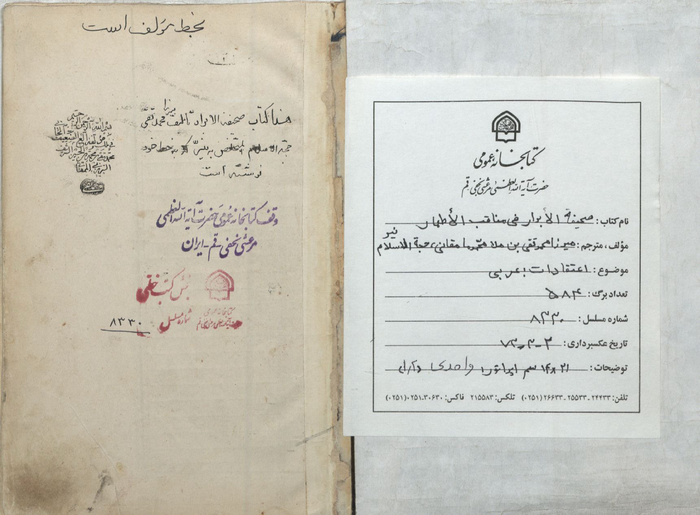 بخط مؤلف است
هذا کتاب صحیفة الابرار تألیف میرزا محمد تقی
حجة الاسلام المتخلص به نیر که به خط خود
نوشته است
وقف کتابخانه عمومی حضرت آیة الله العظمی
مرعشی نجفی - قم - ایران
بخش کتب خطی
شماره مسلسل
۸۳۳۰
کتابخانه عمومی
حضرت آیة الله العظمی مرعشی نجفی - قم
نام کتاب: صحیفة الأبرار فی مناقب الأطهار
مؤلف، مترجم: میرزا محمد تقی بن ملا محمد مامقانی، حجة الاسلام نیر
موضوع: اعتقادات بعربی
تعداد برگ: ۵۸۴
شماره مسلسل: ۸۳۳۰
تاریخ عکسبرداری: ۷۳-۳-۲
توضیحات: ۲۱×۱۴ سم
تلفن: ۲۴۲۳۳-۲۵۵۳۳-۲۶۶۳۳ (۰۲۵۱) تلکس: ۲۱۵۵۸۳ فاکس: ۳۰۶۳۰-(۰۲۵۱)